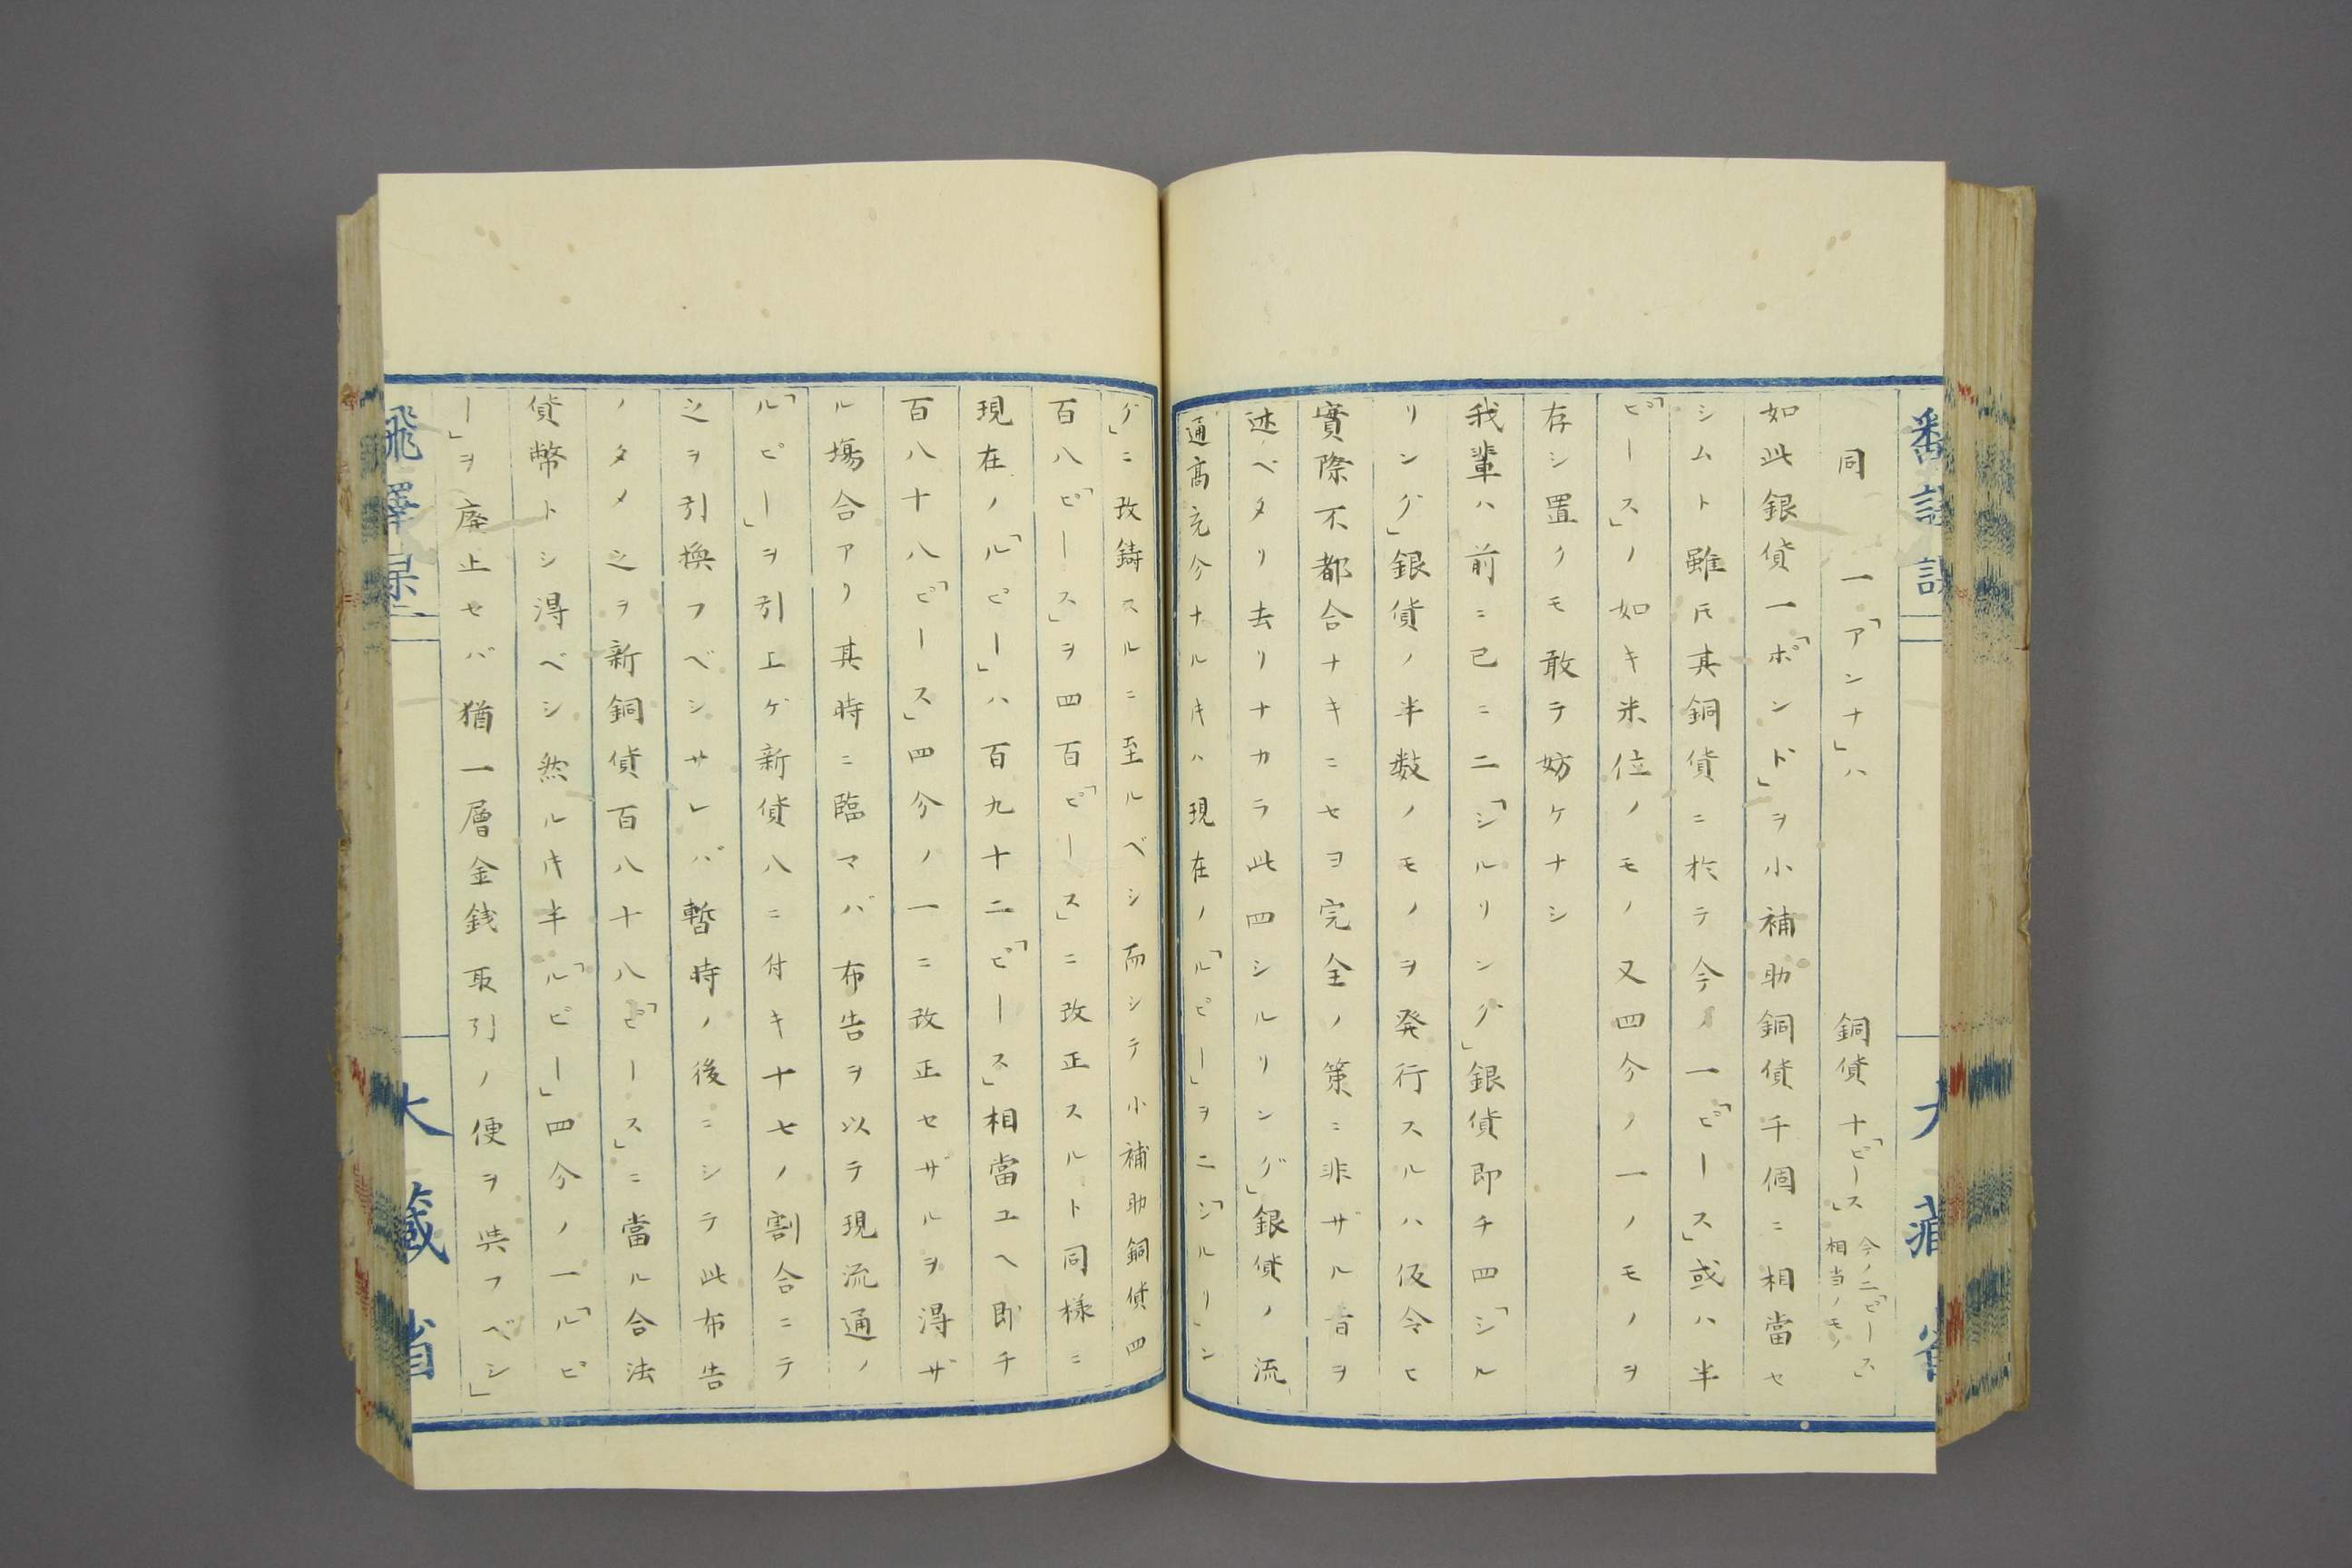 同　一「アンナ」ハ　銅貨　十「ピース」今ノ二「ピース」相当ノモノ
如此銀貨一「ポンド」ヲ小補助銅貨千個ニ相當セ
シムト雖𪜈其銅貨ニ於テ今ノ一「ピース」或ハ半
「ピース」ノ如キ米位ノモノ又四分ノ一ノモノヲ
存シ置クモ敢テ妨ケナシ
我輩ハ前ニ已ニ二「シルリング」銀貨即チ四「シル
リング」銀貨ノ半数ノモノヲ発行スルハ仮令ヒ
實際不都合ナキニセヨ完全ノ策ニ非ザル旨ヲ
述ベタリ去リナカラ此四シルリング」銀貨ノ流
通高充分ナルキハ現在ノ「ルピー」ヲ二「シルリン
グ」ニ改鋳スルニ至ルベシ而シテ小補助銅貨四
百八「ピース」ヲ四百「ピース」ニ改正スルト同様ニ
現在ノ「ルピー」ハ百九十二「ピース」相當ユヘ即チ
百八十八「ピース」四分ノ一ニ改正セザルヲ得ザ
ル場合アリ其時ニ臨マバ布告ヲ以テ現流通ノ
「ルピー」ヲ引上ゲ新貨八ニ付キ十七ノ割合ニテ
之ヲ引換フベシサレバ暫時ノ後ニシテ此布告
ノタメ之ヲ新銅貨百八十八「ピース」ニ當ル合法
貨幣トシ得ベシ然ルキ半「ルピー」四分ノ一「ルピ
ー」ヲ廃止セバ猶一層金銭取引ノ便ヲ與フベシ」
大蔵省